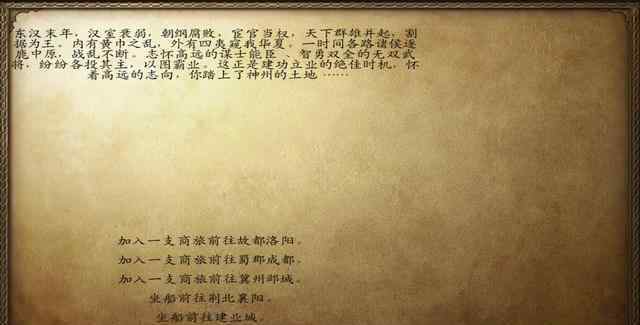 东汉末年，汉室衰弱，朝纲腐败，宦官当权，天下群雄并起，割
据为王。内有黄巾之乱，外有四夷窥我华夏。一时间各路诸侯逐
鹿中原，战乱不断。志怀高远的谋士能臣、智勇双全的无双武
将，纷纷各投其主，以图霸业。这正是建功立业的绝佳时机，怀
着高远的志向，你踏上了神州的土地 ……
加入一支商旅前往故都洛阳。
加入一支商旅前往蜀郡成都。
加入一支商旅前往冀州邺城。
坐船前往荆北襄阳。
坐船前往建业城。